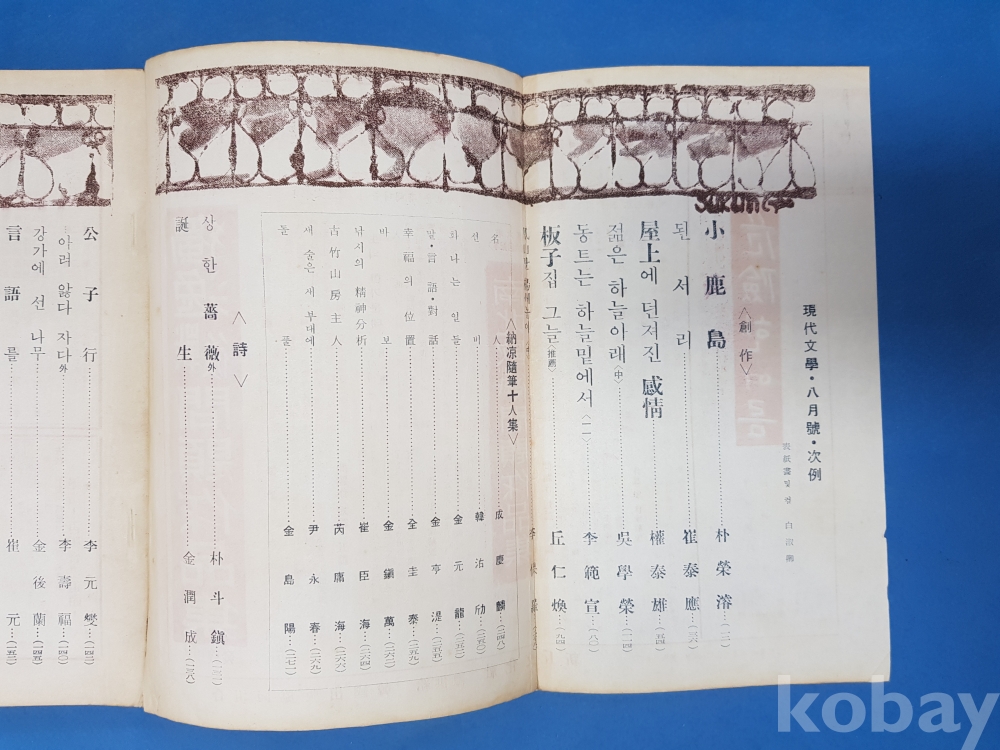 現代文學·八月號·次例
表紙畵및컷 白
〈創作〉
小鹿島……朴榮濬…(一二)
된서리……崔泰應…(三六)
屋上에 던져진 感情……權泰雄…(五四)
젊은 하늘아래〈中〉……吳學榮…(一一四)
동트는 하늘밑에서〈一〉……李範宣…(八〇)
板子집 그늘〈推薦〉……丘仁煥…(九四)
〈納凉隨筆十人集〉
名人……成慶麟…(二四八)
선비……韓沽劤…(二五〇)
하나는 일들……金元龍…
말·言語·對話……金亨湜…
幸福의 位置……全圭泰…(二五九)
바보……金鎭萬…(二六二)
낚시의 精神分析……崔臣海…(二六四)
古竹山房主人……芮庸海…(二六六)
새 술은 새 부대에……尹永春…(二六九)
돌풀……金島陽…(二七一)
〈詩〉
상한 薔薇外……朴斗鎭…
誕生……金潤成…(一三八)
公子行……李元燮…(一四二)
아려 않다 자다外……李壽福…(一四〇)
강가에 선 나무……金後蘭…(一四五)
言語를……崔元…(一五二)
kobay